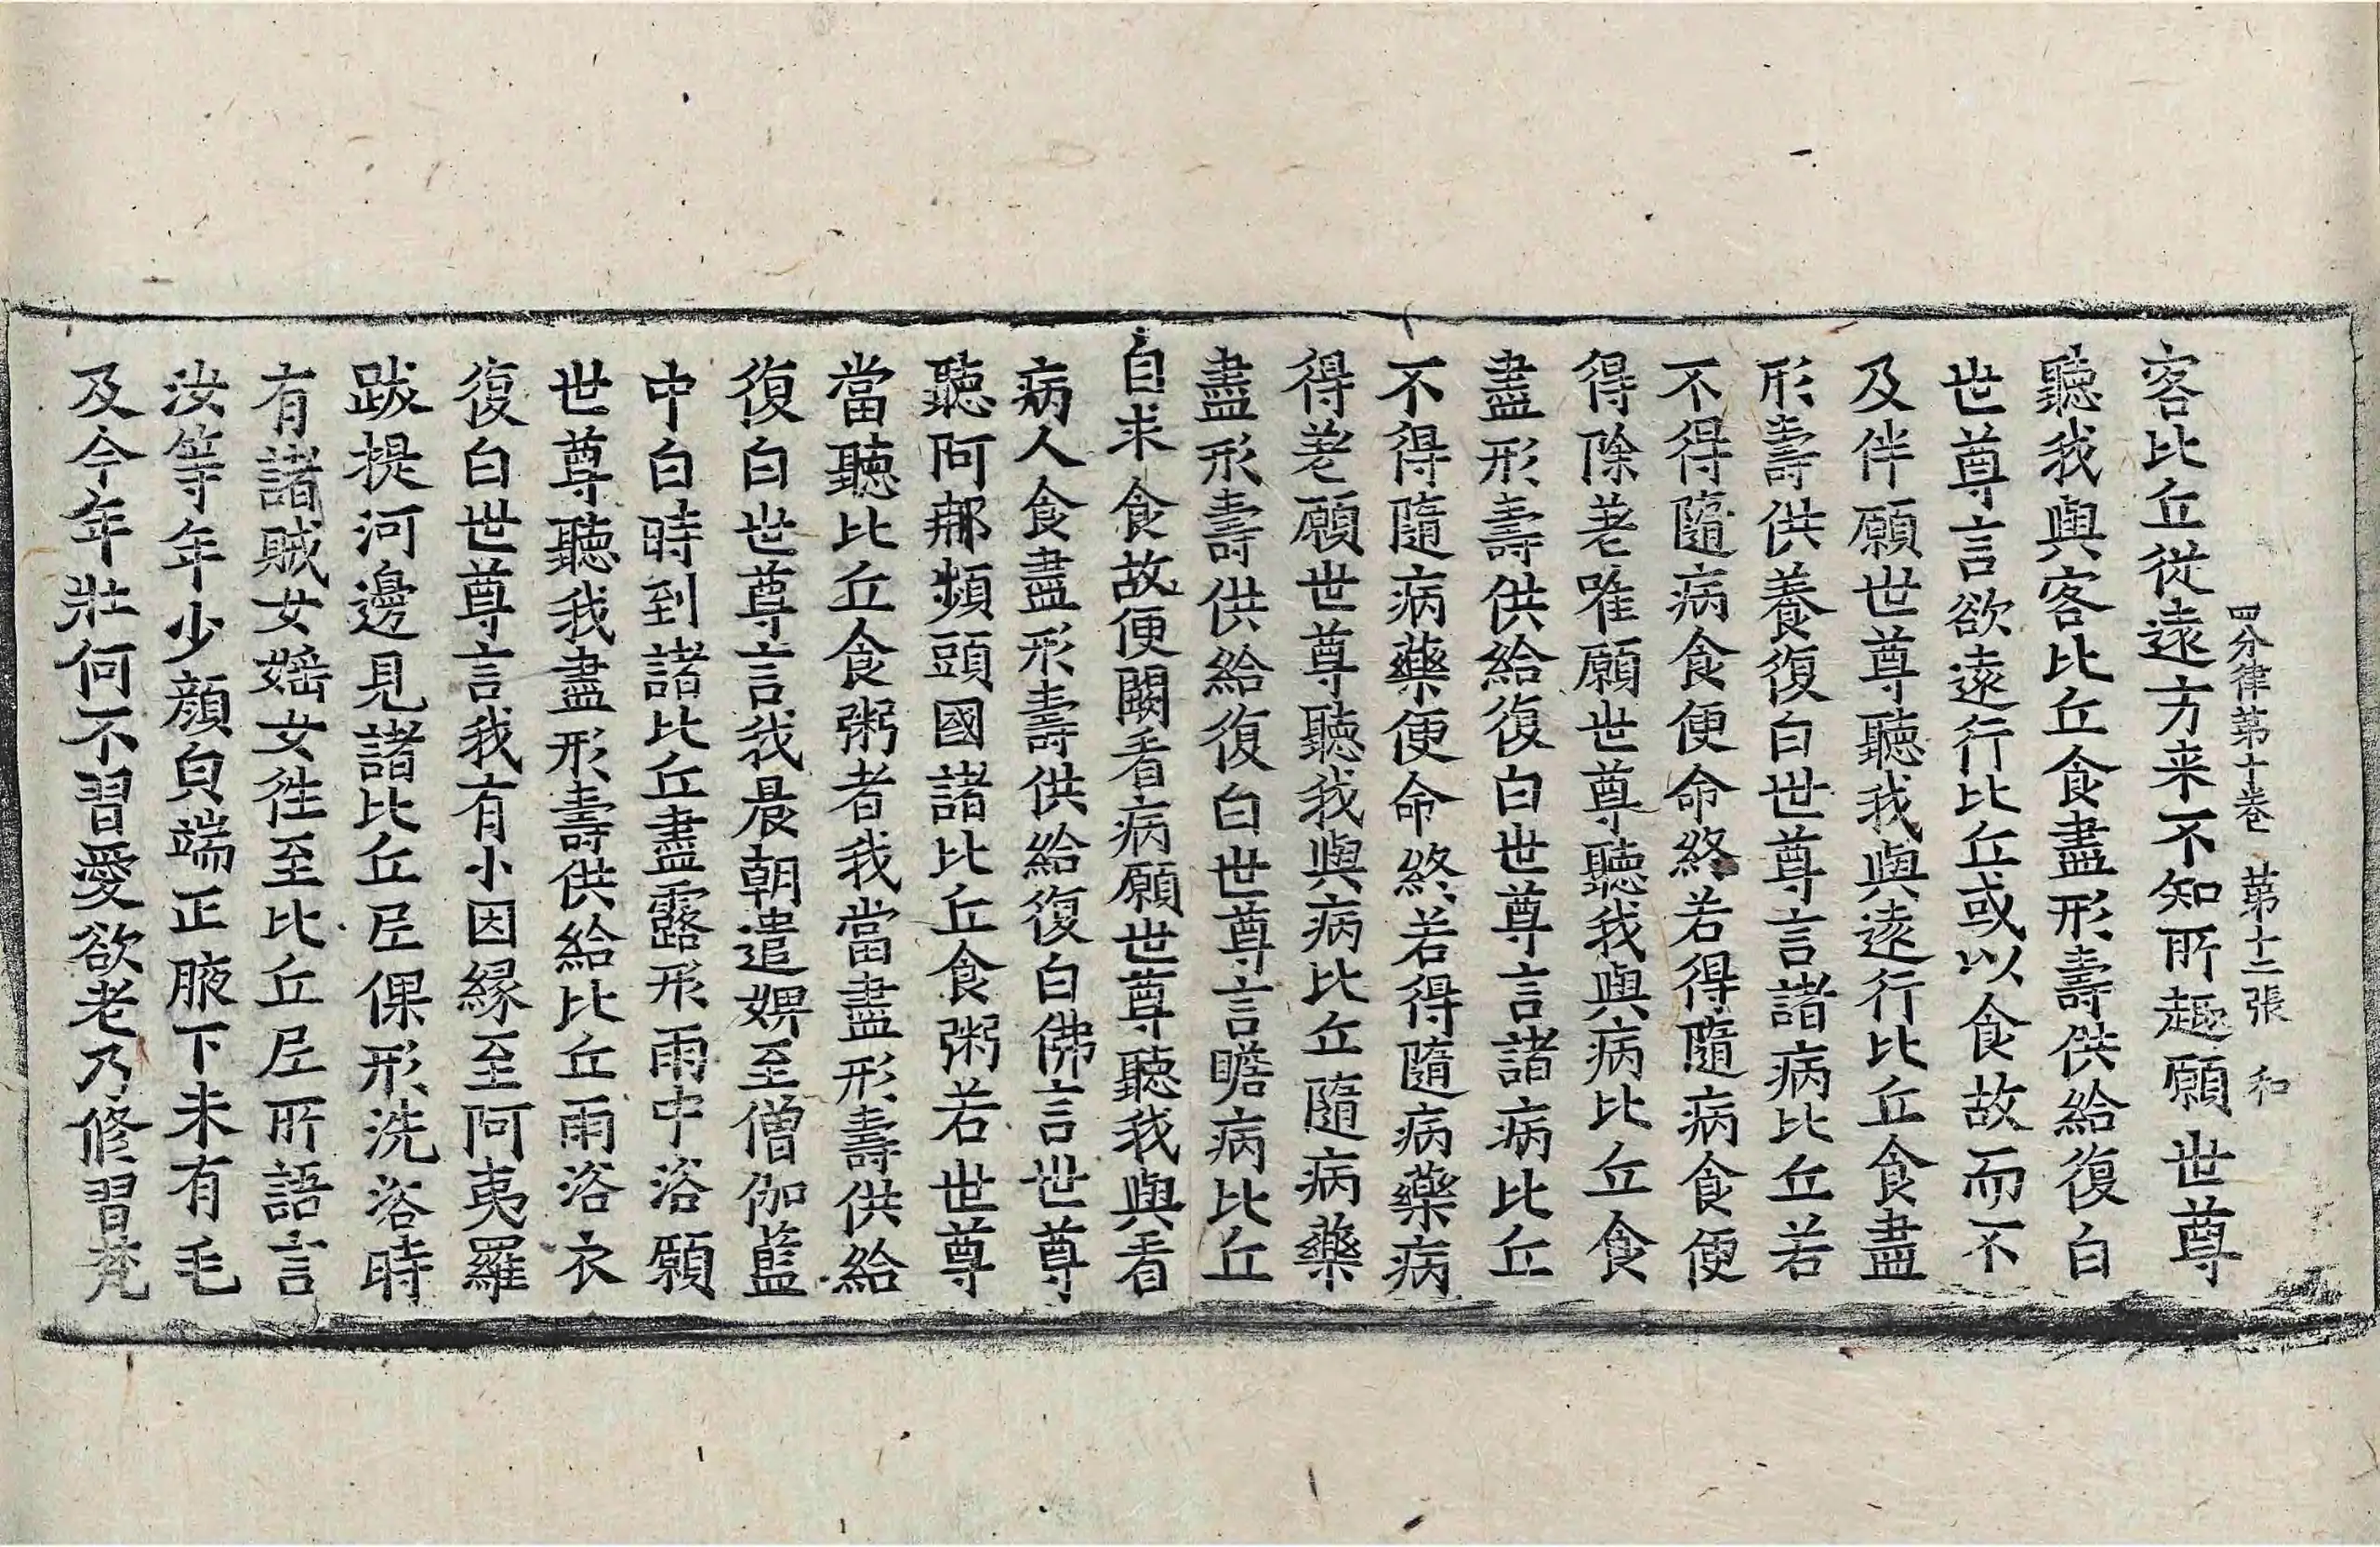 四分律第十卷 第十二張 和
客比丘從遠方来不知所趣願世尊
聽我與客比丘食盡形壽供給復白
世尊言欲遠行比丘或以食故而不
及伴願世尊聽我與遠行比丘食盡
形壽供養復白世尊言諸病比丘若
不得隨病食便命終若得隨病食便
得除差唯願世尊聽我與病比丘食
盡形壽供給復白世尊言諸病比丘
不得隨病藥便命終若得隨病藥病
得差願世尊聽我與病比丘隨病藥
盡形壽供給復白世尊言瞻病比丘
自求食故便闕看病願世尊聽我與看
病人食盡形壽供給復白佛言世尊
聽阿那頻頭國諸比丘食粥若世尊
當聽比丘食粥者我當盡形壽供給
復白世尊言我晨朝遣婢至僧伽藍
中白時到諸比丘盡露形雨中浴願
世尊聽我盡形壽供給比丘雨浴衣
復白世尊言我有小因縁至阿夷羅
跋提河邊見諸比丘尼倮形洗浴時
有諸賊女婬女徃至比丘尼所語言
汝等年少顔白端正腋下未有毛
及今年壯何不習愛欲老乃修習梵